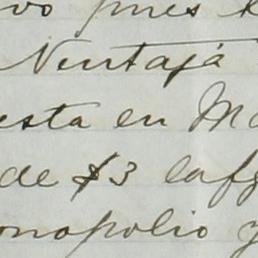 vo pues
Ventajá
esta en Ma
de $3 caf
onopolio y